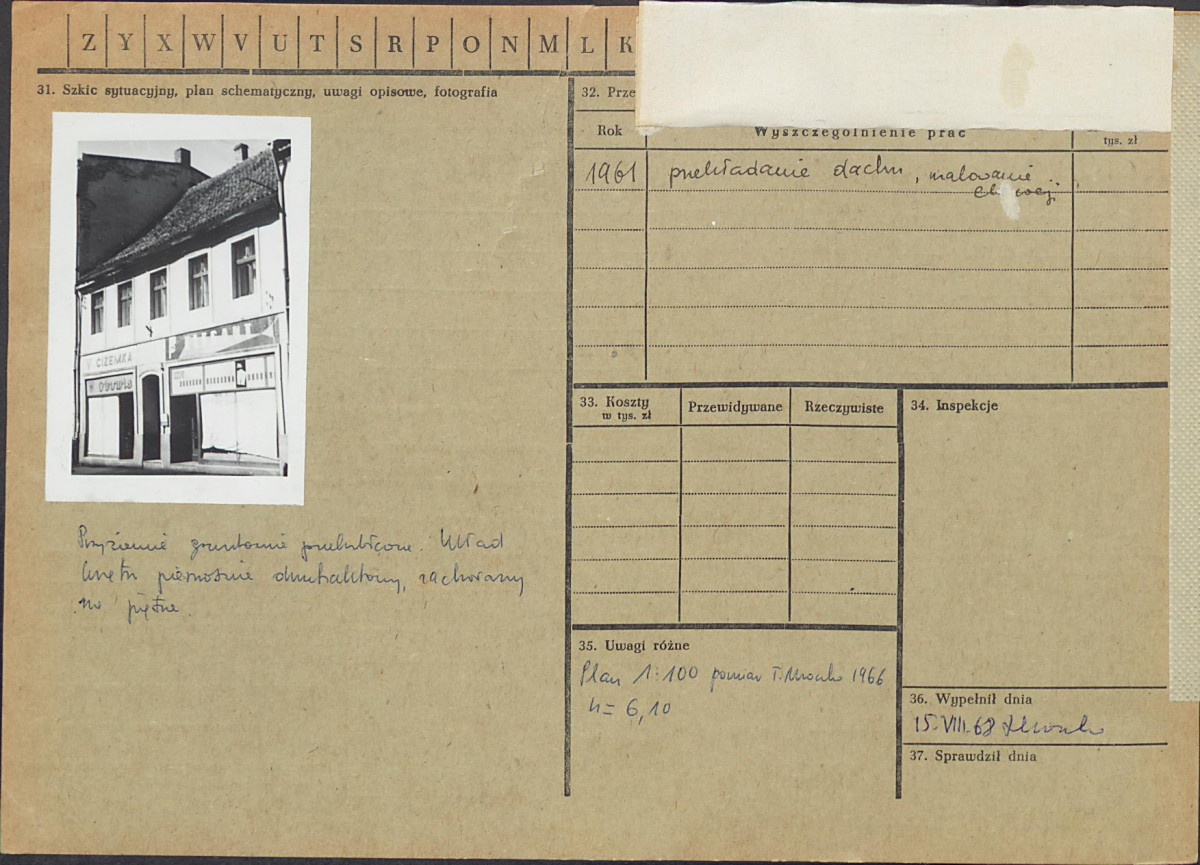 Z Y X W V U T S R P O N M L K
31. Szkic sytuacyjny, plan schematyczny, uwagi opisowe, fotografia
CIŻEMKA
OBUWIE
Przyziemie gruntownie przekształcone. Układ
wnętrz pierwotnie dwutraktowy, zachowany
na piętrze.
32. Prze
Rok
Wyszczególnienie prac
tys. zł
1961 przekładanie dachu, malowanie
33. Koszty
w tys. zł
Przewidywane
Rzeczywiste
34. Inspekcje
35. Uwagi różne
Plan 1:100 pomiar T. 1966
h = 6,10
36. Wypełnił dnia
15.VIII.68
37. Sprawdził dnia